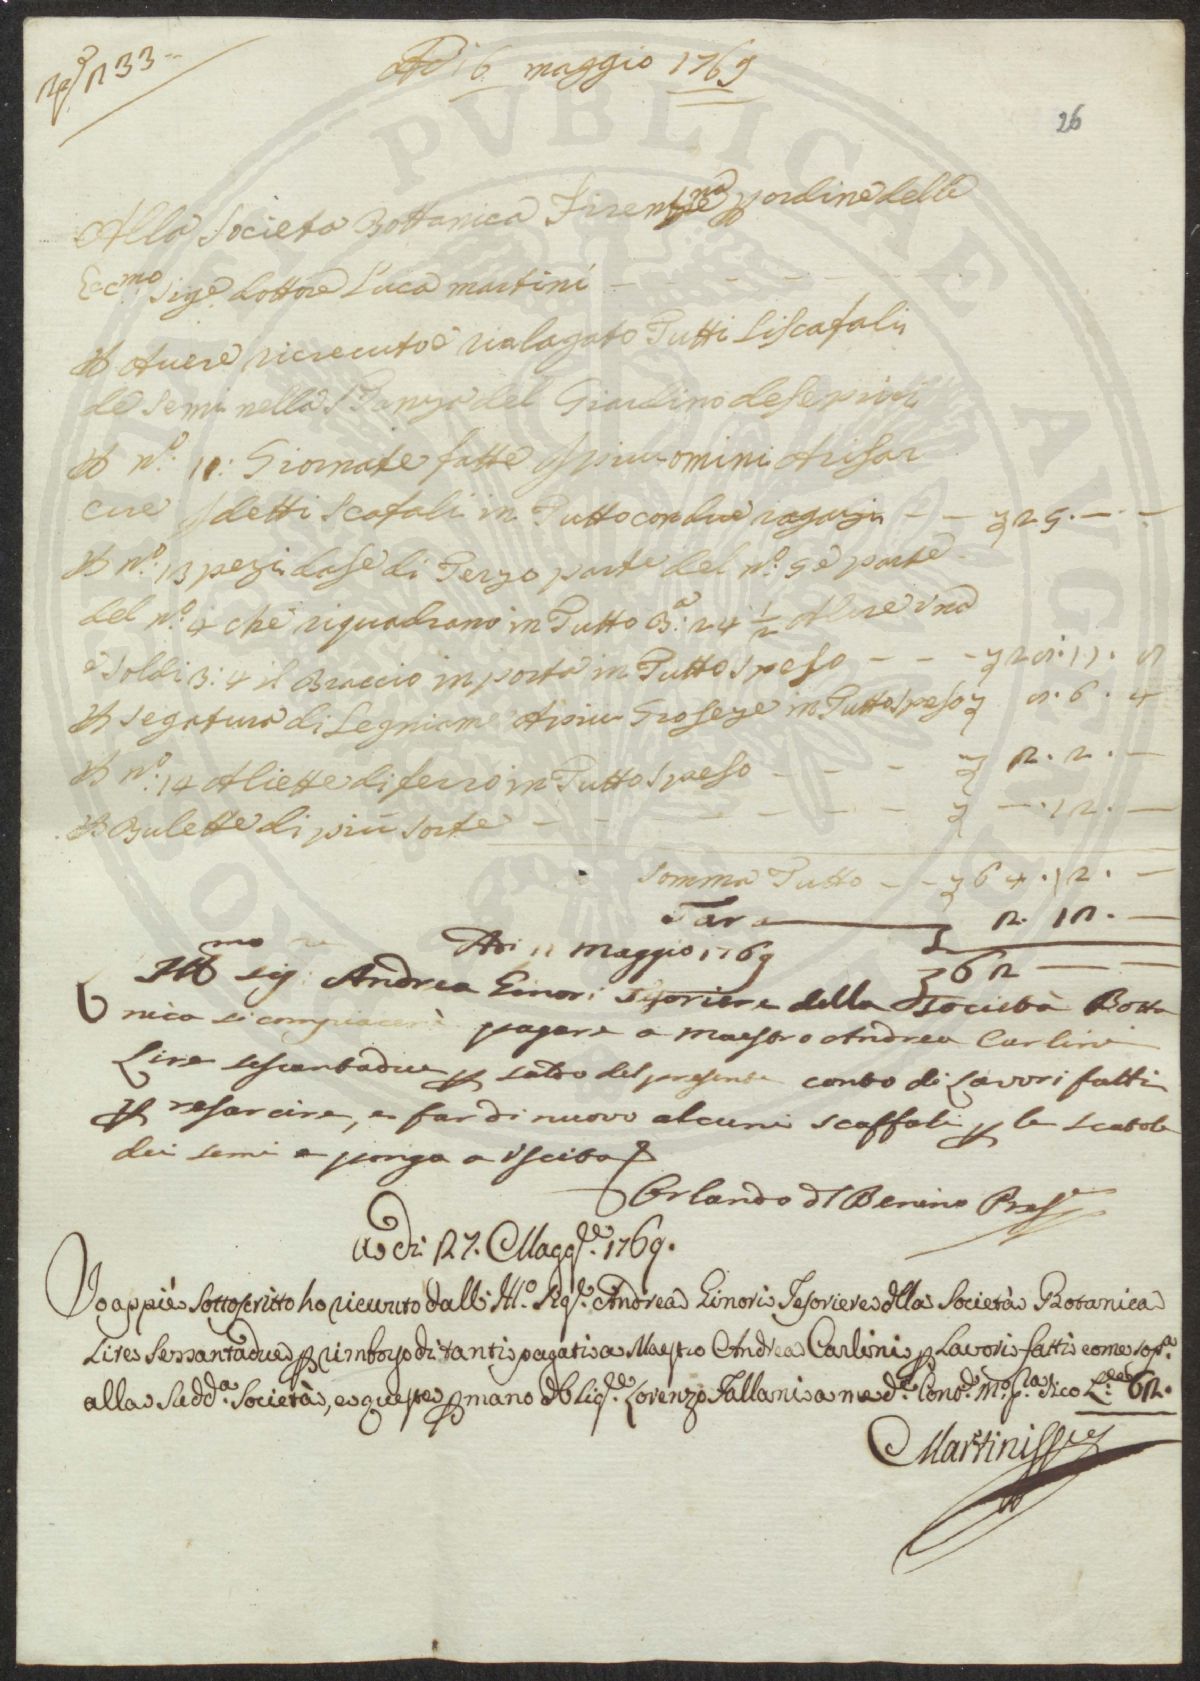 N 33
Adi 6 maggio 1769
26
Alla Societa Bottanica Firentina p ordine delle
Ecc.mo Sig.e dottore Luca martini - - -
P Avere ricrecuto e rialagato Tutti Li Scafali
de Semi nella Stanza del Giardino de Senprici
P n.o 11: Giornate fatte p piu omini A risar
cire detti Scafali in Tutto con due ragazzi - - 25. - . -
P n.o 13 pezi dase di Terzo parte del n.o 5 e parte
del n.o 4 che riquadrano in Tutto B.a: 24 1/2 A Lire una
e Soldi 3: 4 il Braccio in porta in Tutto Speso - - - 28. 11. 8
P Segatura di Legniame A piu Groseze in Tutto Speso 8. 6. 4
P n.o 14 Aliette di ferro in Tutto Speso - - - 2. 2. -
P Bulette di piu Sorte - - - - - - . 12. -
Somma Tutto - - 64. 12. -
Tara 2. 12. -
62 - -
Adi 11 Maggio 1769
Ill.mo Sig.re Andrea Ginori Tesoriere della Società Botta
nica si compiacerà pagare a Maestro Andrea Carlini
Lire sessantadue p saldo del presente conto di Lavori fatti
p resarcire, e far di nuovo alcuni scaffali p le scatole
dei semi e ponga a Uscita
Orlando Del Benino Pres.e
Adi 27. Magg.e 1769.
Io appiè Sottoscritto ho ricevuto dall' Ill.o Sig.e Andrea Ginori Tesoriere dlla Società Botanica
Lire Sessantadue p rimborzo di tanti pagati a Maestro Andrea Carlini p Lavori fatti come sop.a
alla Sudd.a Società, e queste p mano del Sig.e Lorenzo Fallani a me d.e Cont. M.o p.a dico L.e 62.
Martini